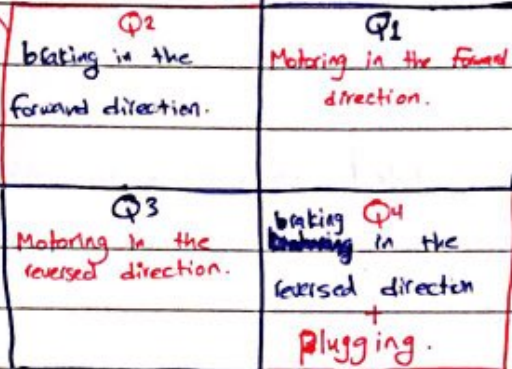 Q2
braking in the
forward direction.
Q1
Motoring in the forward
direction.
Q3
Motoring in the
reversed direction.
Q4
braking
in the
reversed direction
+
plugging.